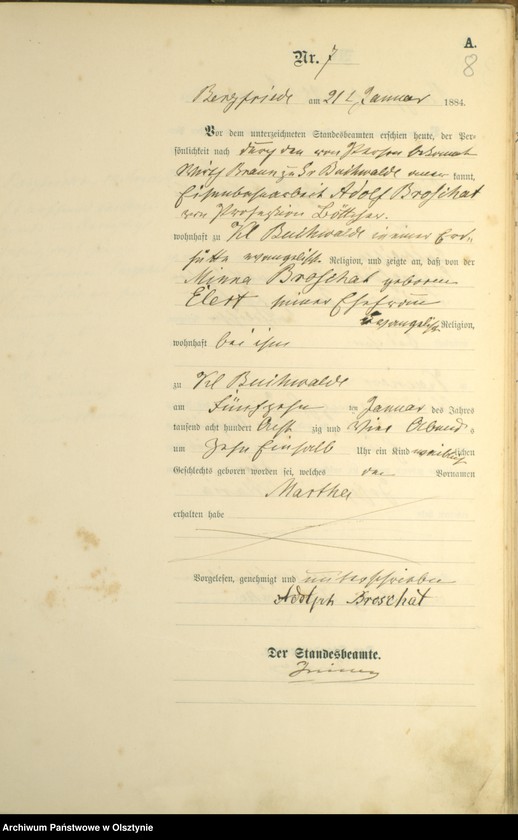 A.
8
Nr. 7
Bergfriede am 21t Januar 1884.
Vor dem unterzeichneten Standesbeamten erschien heute, der Per-
sönlichkeit nach durch den von Person bekannt
Wirth Braun zu Kl Buchwalde aner kannt,
Eisenbahnarbeit Adolf Broschat
von Profession Böttcher.
wohnhaft zu Kl Buchwalde in einer Erd-
hütte evangelisch Religion, und zeigte an, daß von der
Minna Broschat geborene
Elert seiner Ehefrau
evangelisch Religion,
wohnhaft bei ihm
zu Kl Buchwalde
am Fünfzehn ten Januar des Jahres
tausend acht hundert Acht zig und Vier Abend-
um Zehn Einhalb Uhr ein Kind weiblich lichen
Geschlechts geboren worden sei, welches den Vornamen
Martha
erhalten habe
Vorgelesen, genehmigt und unterschrieben
Adolph Broschat
Der Standesbeamte.
Archiwum Państwowe w Olsztynie